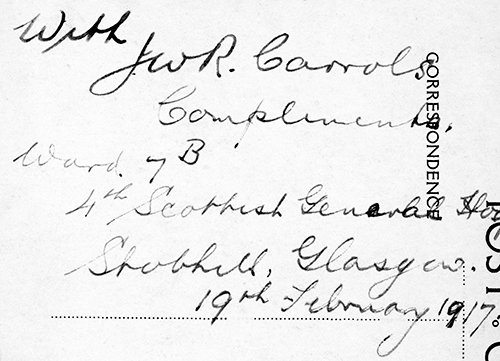 With
J.W.R. Carrols
Compliments,
Ward 7 B
4th Scottish General Hos
Stobhill, Glasgow.
19th February 1917.
CORRESPONDENCE
POST